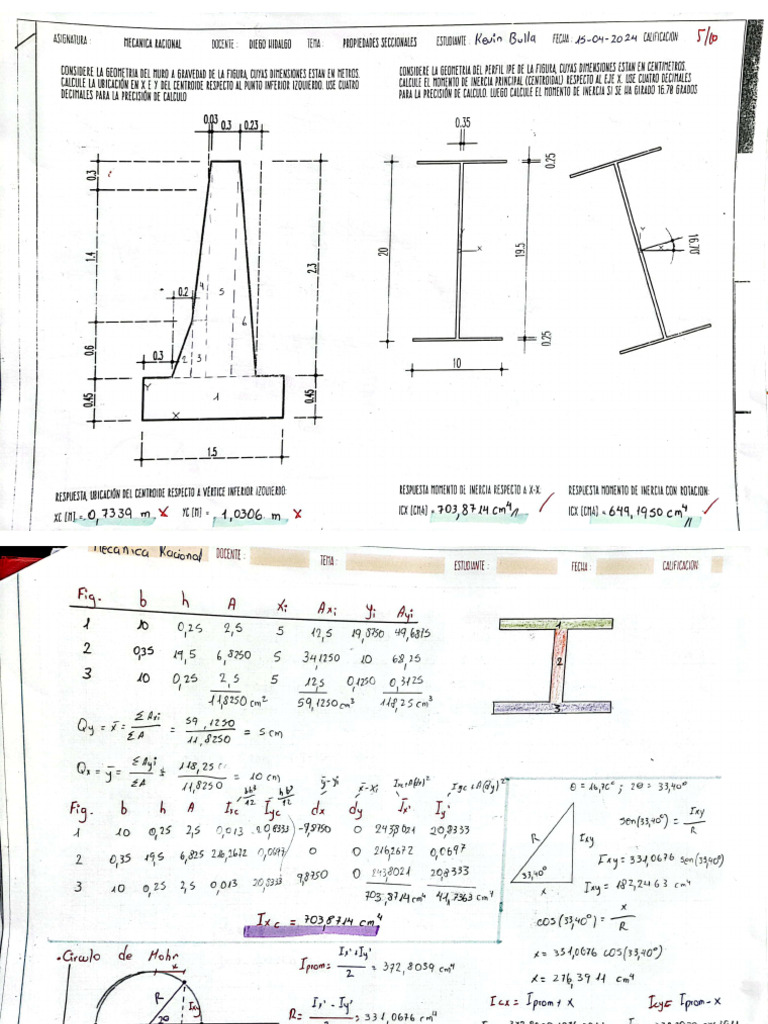 ASIGNATURA : MECANICA RACIONAL DOCENTE : DIEGO HIDALGO TEMA : PROPIEDADES SECCIONALES ESTUDIANTE : Kevin Bulla FECHA : 15-04-2024 CALIFICACION 5/10
CONSIDERE LA GEOMETRIA DEL MURO A GRAVEDAD DE LA FIGURA, CUYAS DIMENSIONES ESTAN EN METROS.
CALCULE LA UBICACIÓN EN X E Y DEL CENTROIDE RESPECTO AL PUNTO INFERIOR IZQUIERDO. USE CUATRO
DECIMALES PARA LA PRECISIÓN DE CALCULO
CONSIDERE LA GEOMETRIA DEL PERFIL IPE DE LA FIGURA, CUYAS DIMENSIONES ESTAN EN CENTIMETROS.
CALCULE EL MOMENTO DE INERCIA PRINCIPAL (CENTROIDAL) RESPECTO AL EJE X. USE CUATRO DECIMALES
PARA LA PRECISIÓN DE CALCULO. LUEGO CALCULE EL MOMENTO DE INERCIA SI SE HA GIRADO 16.78 GRADOS
0.03 0.3 0.23
0.3
1.4
0.6
0.45
0.2
0.3
4 5 6
2 3
1
Y
X
2.3
0.45
1.5
0.35
0.25
20
19.5
Y
X
0.25
10
Y
X
16.70°
RESPUESTA, UBICACIÓN DEL CENTROIDE RESPECTO A VÉRTICE INFERIOR IZQUIERDO:
XC [M] = 0,7339 m x YC [M] = 1,0306 m x
RESPUESTA MOMENTO DE INERCIA RESPECTO A X-X.
ICX [CM4] = 703,8714 cm⁴
RESPUESTA MOMENTO DE INERCIA CON ROTACION:
ICX [CM4] = 649,1950 cm⁴
Mecánica Racional DOCENTE : TEMA : ESTUDIANTE : FECHA : CALIFICACION
Fig. b h A Xi Axi yi Ayi
1 10 0,25 2,5 5 12,5 19,8750 49,6875
2 0,35 19,5 6,8250 5 34,1250 10 68,25
3 10 0,25 2,5 5 12,5 0,1250 0,3125
11,8250 cm² 59,1250 cm³ 118,25 cm³
1
2
3
Qy = x̄ = ΣAxi / ΣA = 59,1250 / 11,8250 = 5 cm
Qx = ȳ = ΣAyi / ΣA = 118,25 / 11,8250 = 10 cm
Fig. b h A Ixc bh³/12 Iyc hb³/12 dx ȳ-yi dy x̄-xi Ix' Iy'
1 10 0,25 2,5 0,013 20,8333 -9,8750 0 243,8021 20,8333
2 0,35 19,5 6,825 216,2672 0,0697 0 0 216,2672 0,0697
3 10 0,25 2,5 0,013 20,8333 9,8750 0 243,8021 20,8333
703,8714 cm⁴ 41,7363 cm⁴
Ixc = 703,8714 cm⁴
θ = 16,70° ; 2θ = 33,40°
R
Ixy
33,40°
x
sen(33,40°) = Ixy / R
Ixy = 331,0676 sen(33,40°)
Ixy = 182,2463 cm⁴
cos(33,40°) = x / R
x = 331,0676 cos(33,40°)
x = 276,3911 cm⁴
• Círculo de Mohr
x
R
Ixy
2θ
Iprom = Ix' + Iy' / 2 = 372,8039 cm⁴
R = Ix' - Iy' = 331,0676 cm⁴
Icx = Iprom + x
Icy = Iprom - x